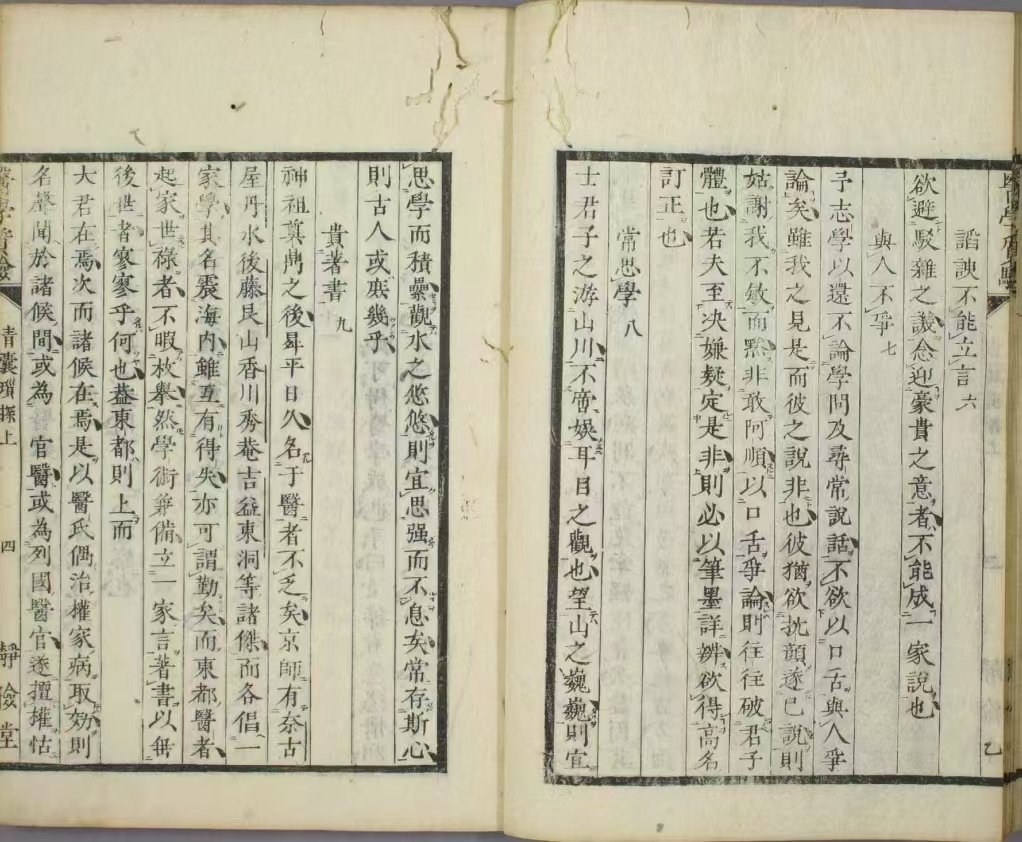 諂諛不能立言 六
欲避駁雜之議念迎豪貴之意者不能成一家說也
與人不爭 七
予志學以還不論學問及尋常說話不欲以口舌與人爭
論矣雖我之見是而彼之說非也彼猶欲抗顏遂已說則
姑謝我不敏而黙非敢阿順以口舌爭論則往往破君子
體也若夫至决嫌疑定是非則必以筆墨詳辨欲得高名
訂正也
常思學 八
士君子之游山川不啻娛耳目之觀也望山之巍巍則宜
乙
思學而積壘觀水之悠悠則宜思强而不息矣常存斯心
則古人或庶幾乎
貴著書 九
神祖奠鼎之後昇平日久名于醫者不乏矣京師有奈古
屋丹水後藤艮山香川秀菴吉益東洞等諸傑而各倡一
家學其名震海内雖互有得失亦可謂勤矣而東都醫者
起家世祿者不暇枚擧然學術兼備立一家言著書以無
後世者寥寥乎何也葢東都則上而
大君在焉次而諸候在焉是以醫氏偶治權家病取効則
名聲聞於諸候間或為官醫或為列國醫官遂擅權怙
青囊瑣探上
四
靜儉堂